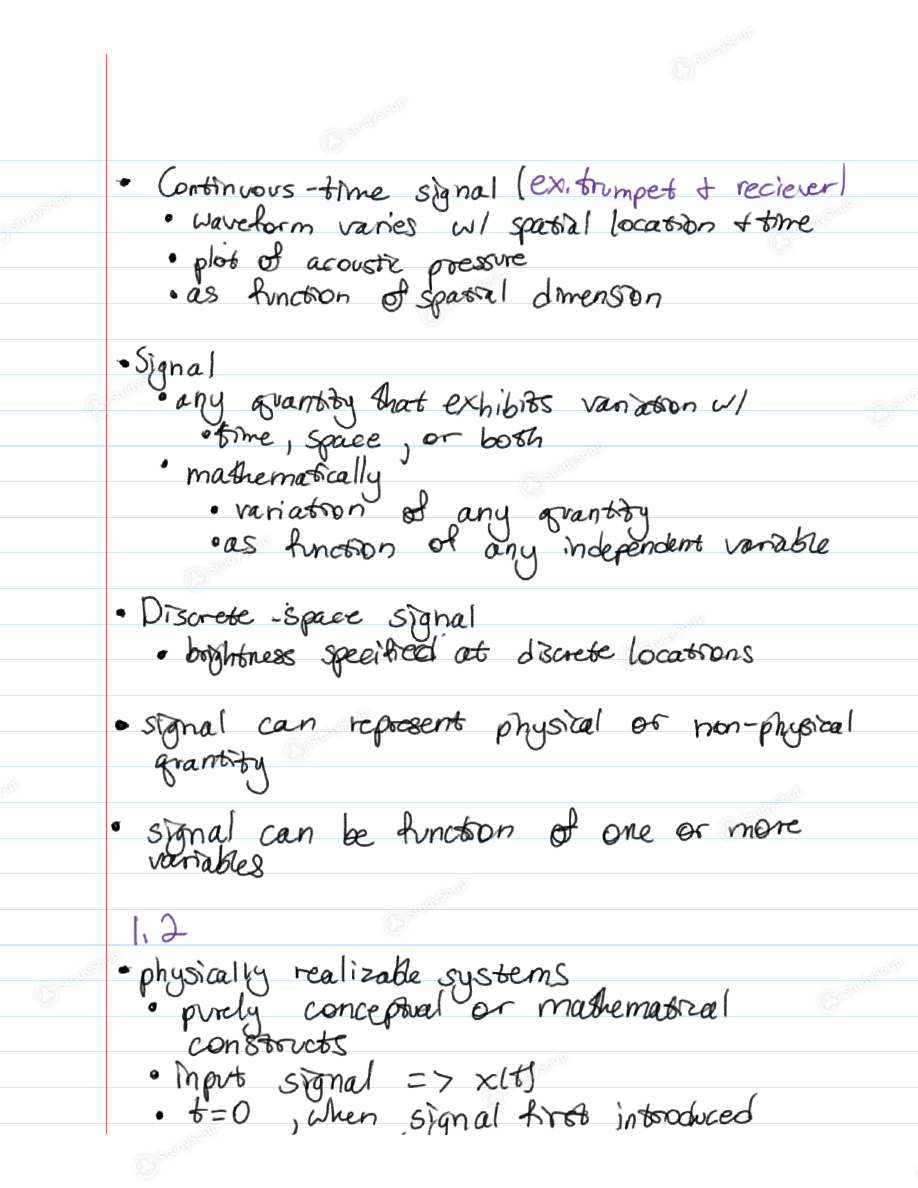 • Continuous-time signal (ex. trumpet + reciever)
• waveform varies w/ spatial location + time
• plot of acoustic pressure
• as function of spatial dimension
• Signal
• any quantity that exhibits variation w/
• time, space, or both
• mathematically
• variation of any quantity
• as function of any independent variable
• Discrete-space signal
• brightness specified at discrete locations
• signal can represent physical or non-physical
quantity
• signal can be function of one or more
variables
1.2
• physically realizable systems
• purely conceptual or mathematical
constructs
• input signal => x(t)
• t=0, when signal first introduced
StudySoup